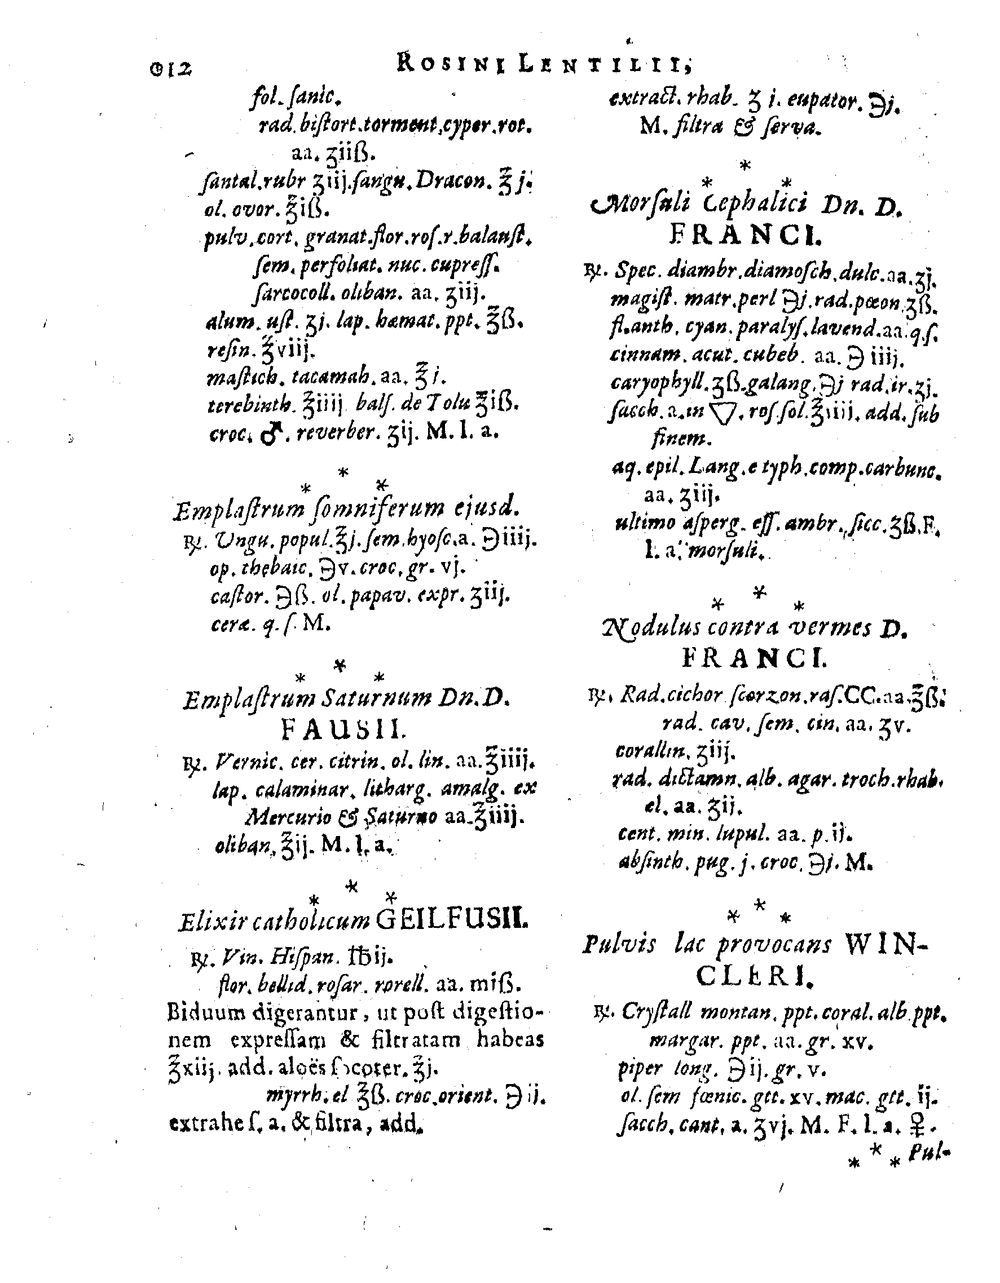 612 ROSINI LENTILII,
fol. ſanic.
rad. biſtort. torment. cyper. rot.
aa. ʒiiß.
ſantal. rubr ʒiij. ſangu. Dracon. ℥j.
ol. ovor. ℥iß.
pulv. cort. granat. flor. roſ. r. balauſt.
ſem. perfoliat. nuc. cupreſſ.
ſarcocoll. oliban. aa. ʒiij.
alum. uſt. ʒj. lap. hæmat. ppt. ℥ß.
reſin. ℥viij.
maſtich. tacamah. aa. ℥j.
terebinth. ℥iiij balſ. de Tolu ℥iß.
croc. ♂. reverber. ʒij. M. l. a.
* * *
Emplaſtrum ſomniferum ejusd.
℞. Ungu. popul. ℥j. ſem. hyoſc. a. ℈iiij.
op. thebaic. ℈v. croc. gr. vj.
caſtor. ℈ß. ol. papav. expr. ʒiij.
ceræ. q. ſ. M.
* * *
Emplaſtrum Saturnum Dn. D.
FAUSII.
℞. Vernic. cer. citrin. ol. lin. aa. ℥iiij.
lap. calaminar. litharg. amalg. ex
Mercurio & Saturno aa. ℥iiij.
oliban. ℥ij. M. l. a.
* * *
Elixir catholicum GEILFUSII.
℞. Vin. Hiſpan. ℔ij.
flor. bellid. roſar. rorell. aa. miß.
Biduum digerantur, ut poſt digeſtio-
nem expreſſam & filtratam habeas
℥xiij. add. aloës ſucoter. ℥j.
myrrh. el ℥ß. croc. orient. ℈ij.
extrahe ſ. a. & filtra, add.
extract. rhab. ʒj. eupator. ℈j.
M. filtra & ſerva.
* * *
Morſuli Cephalici Dn. D.
FRANCI.
℞. Spec. diambr. diamoſch. dulc. aa. ʒj.
magiſt. matr. perl ℈j. rad. pœon. ʒß.
fl. anth. cyan. paralyſ. lavend. aa. q. ſ.
cinnam. acut. cubeb. aa. ℈iiij.
caryophyll. ʒß. galang. ℈j rad. ir. ʒj.
ſacch. a. in ▽. roſ. ſol. ℥iiij. add. ſub
finem.
aq. epil. Lang. e typh. comp. carbunc.
aa. ʒiij.
ultimo aſperg. eſſ. ambr. ſicc. ʒß. F.
l. a. morſuli.
* * *
Nodulus contra vermes D.
FRANCI.
℞. Rad. cichor ſcorzon. raſ. CC. aa. ℥ß.
rad. cav. ſem. cin. aa. ʒv.
corallin. ʒiij.
rad. dictamn. alb. agar. troch. rhab.
el. aa. ʒij.
cent. min. lupul. aa. p. ij.
abſinth. pug. j. croc. ℈j. M.
* * *
Pulvis lac provocans WIN-
CLERI.
℞. Cryſtall montan. ppt. coral. alb ppt.
margar. ppt. aa. gr. xv.
piper long. ℈ij. gr. v.
ol. ſem fœnic. gtt. xv. mac. gtt. ij.
ſacch. cant. a. ʒvj. M. F. l. a. ♀.
* * * Pul-